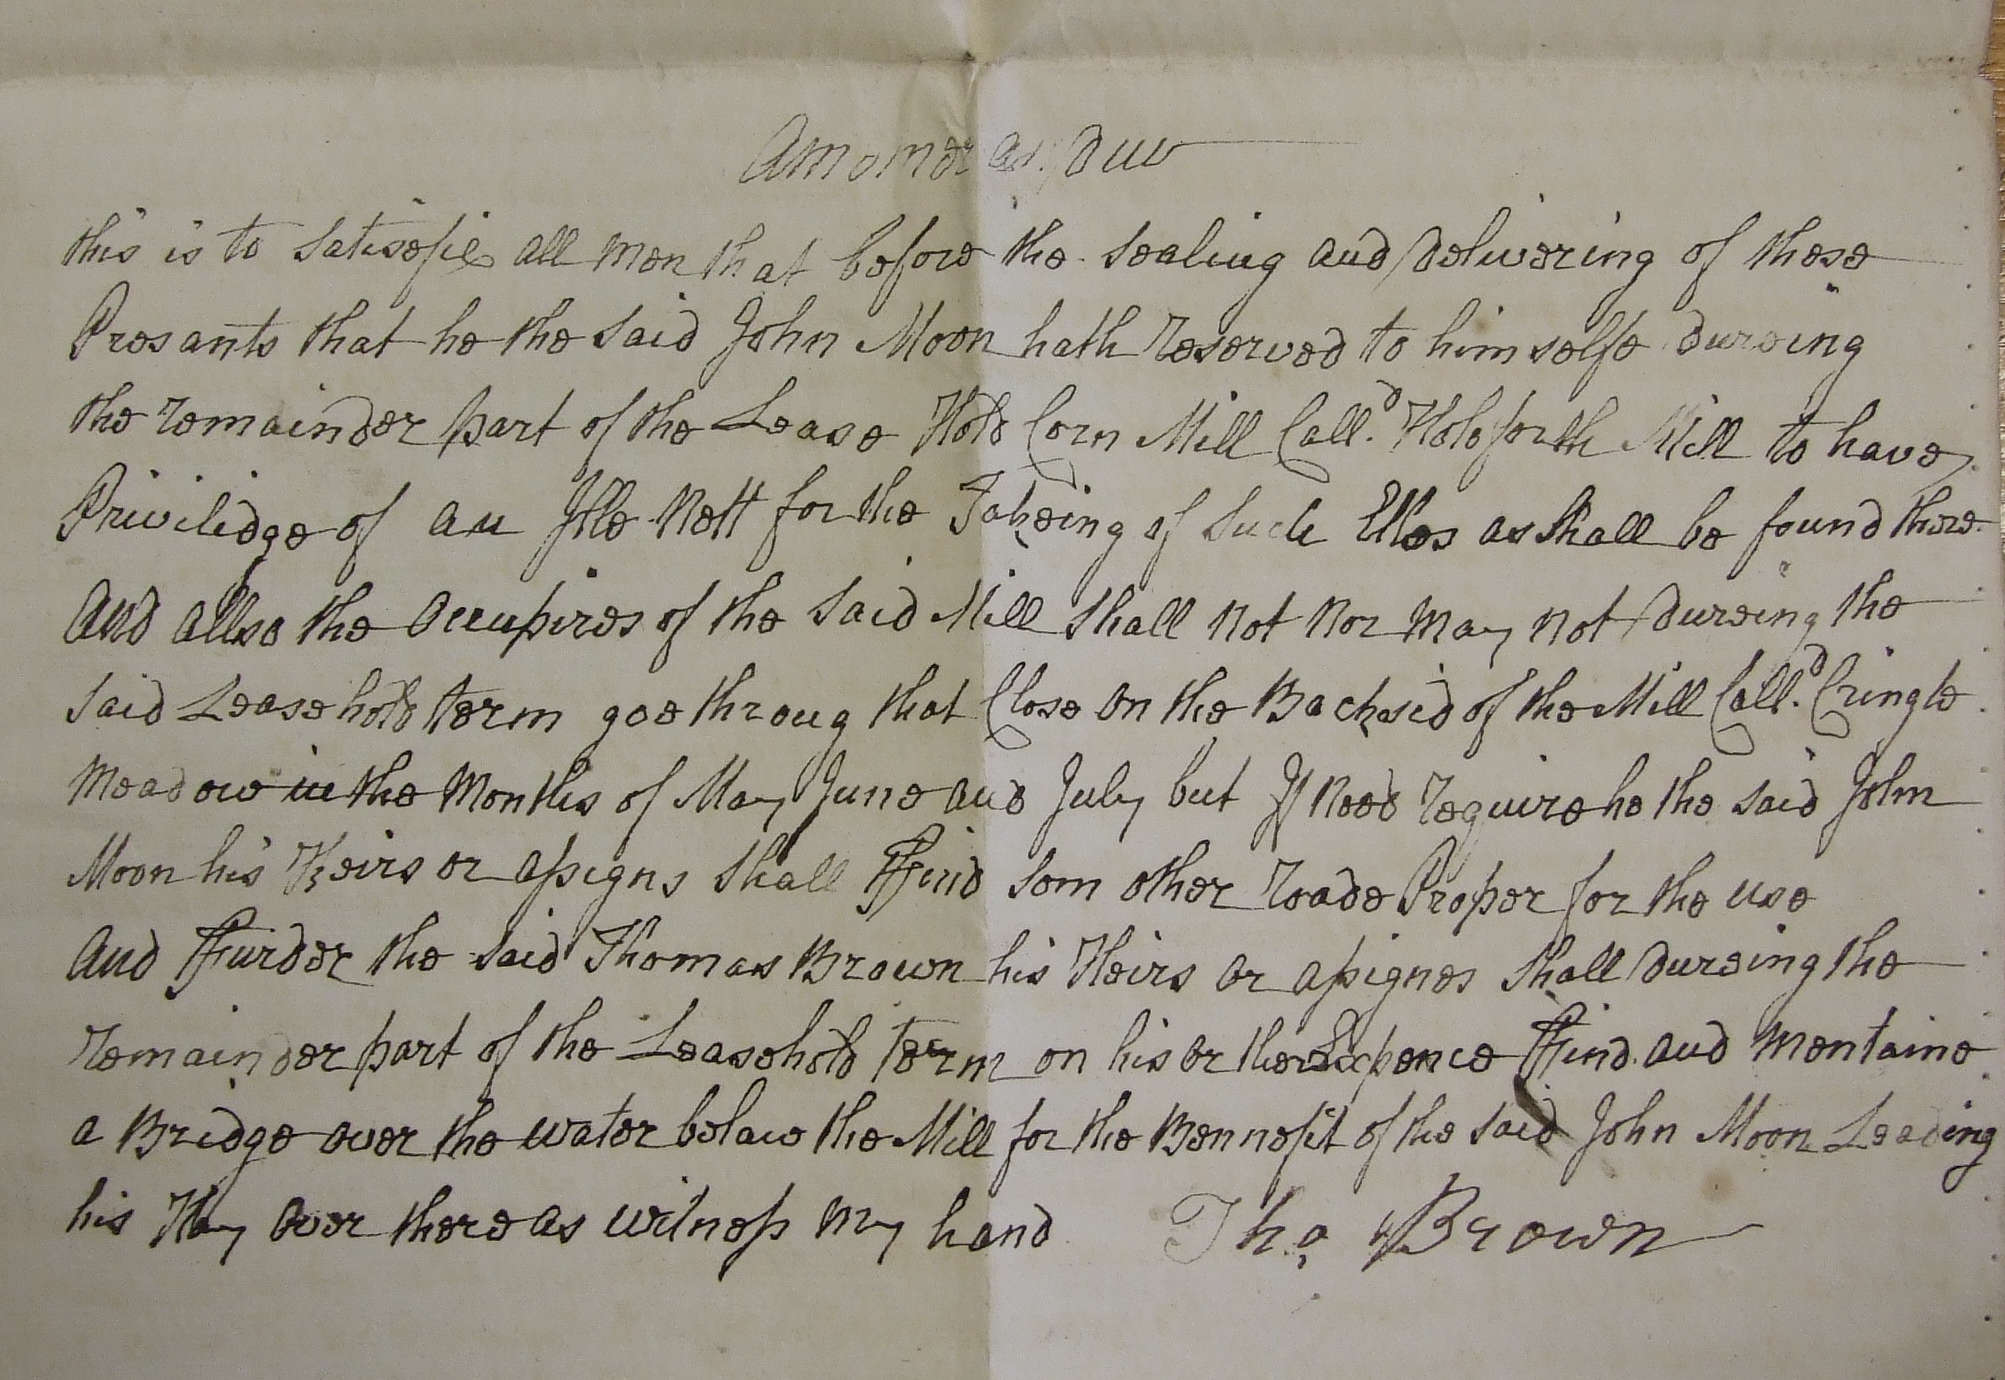 Amomeranduw
this is to satisefie all men that before the sealing and delivering of these
Presants that he the said John Moon hath reserved to himselfe dureing
the remainder part of the Lease Hold Corn Mill Call.d Holeforth Mill to have
Priviledge of an Ille Nett for the Takeing of such Elles as shall be found there
And allso the occupires of the said Mill shall not nor may not dureing the
said Leasehold term goe throug that Close on the Backsid of the Mill Call.d Cringle
Meadow in the Months of May June and July but If need require he the said John
Moon his Heirs or assigns shall Ffind som other roade Proper for the use
And Ffurder the said Thomas Brown his Heirs or assignes shall dureing the
remainder part of the Leasehold term on his or ther Expence Ffind and mentaine
a Bridge over the water belaw the Mill for the Bennefit of the said John Moon Leading
his Hay over there as witness my hand Tho Brown